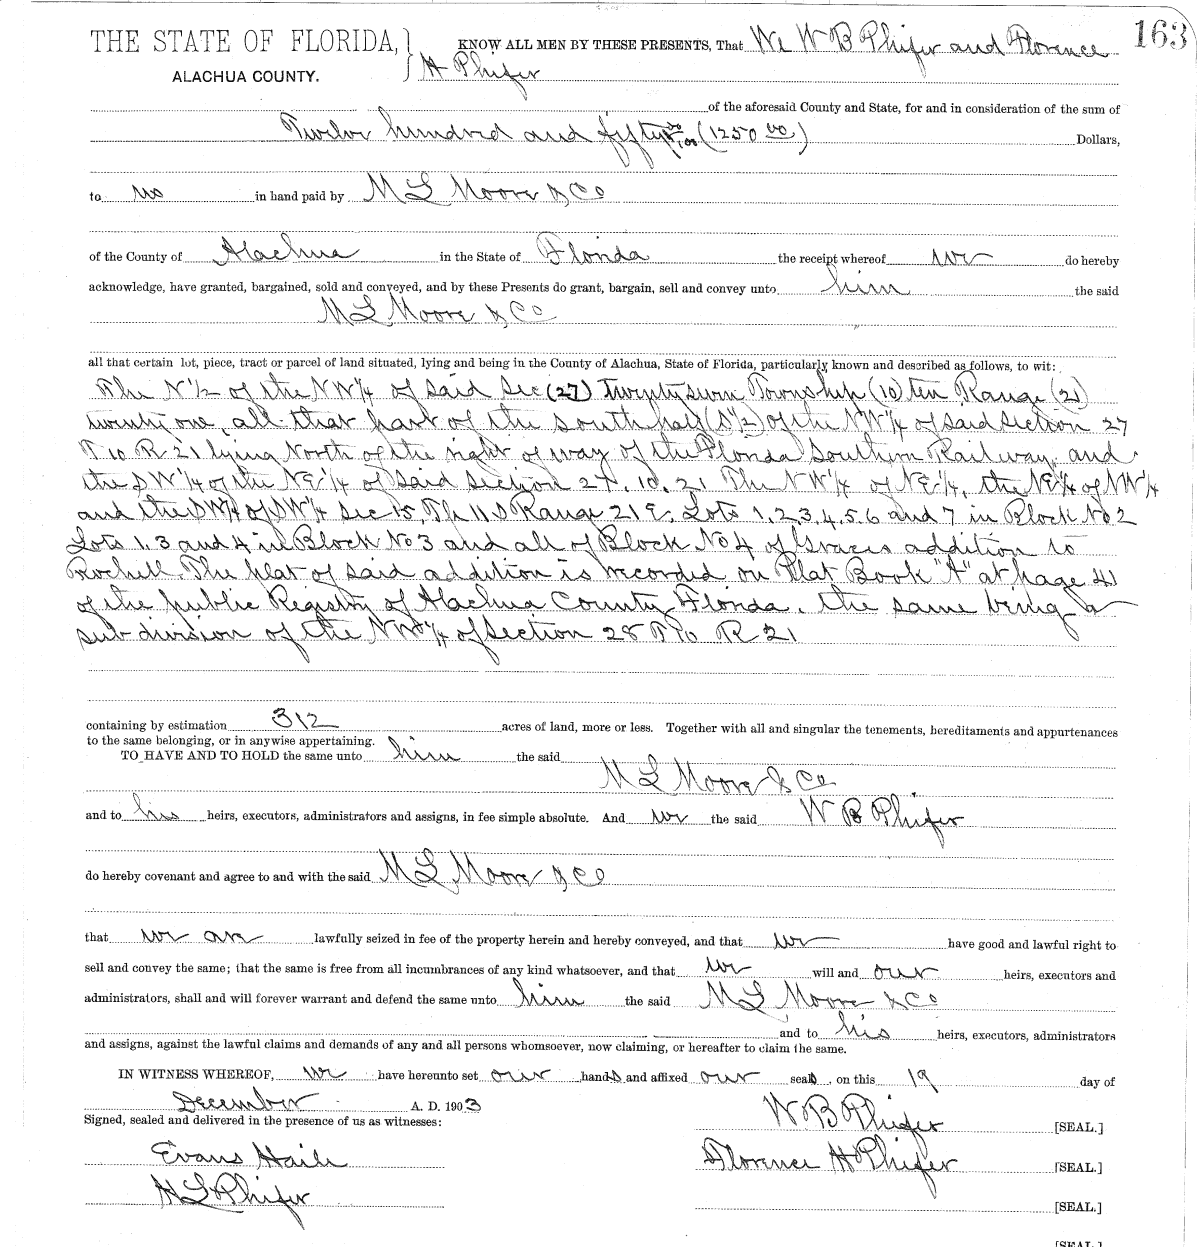 163
THE STATE OF FLORIDA, KNOW ALL MEN BY THESE PRESENTS, That We W B Phifer and Florence
ALACHUA COUNTY. H Phifer
of the aforesaid County and State, for and in consideration of the sum of
Twelve hundred and fifty 00/100 (1250 00) Dollars,
to us in hand paid by M L Moore & Co
of the County of Alachua in the State of Florida the receipt whereof we do hereby
acknowledge, have granted, bargained, sold and conveyed, and by these Presents do grant, bargain, sell and convey unto him the said
M L Moore & Co
all that certain lot, piece, tract or parcel of land situated, lying and being in the County of Alachua, State of Florida, particularly known and described as follows, to wit:
The N 1/2 of the NW 1/4 of said Sec (27) Twenty seven Township (10) ten Range (21)
twenty one, all that part of the south half (S 1/2) of the NW 1/4 of said Section 27
T 10 R 21 lying North of the right of way of the Florida Southern Railway, and
the SW 1/4 of the NE 1/4 of said Section 27. 10. 21 The NW 1/4 of NE 1/4, the NE 1/4 of NW 1/4
and the SW 1/4 of SW 1/4 Sec 15, Tp 11 S Range 21 E. Lots 1, 2, 3, 4, 5, 6 and 7 in Block No 2
Lots 1, 3 and 4 in Block No 3 and all of Block No 4 of Graces addition to
Rochell. The plat of said addition is recorded on Plat Book "A" at page 41
of the public Registry of Alachua County Florida. the same being a
sub division of the NW 1/4 of Section 28 T 10 R 21
containing by estimation 312 acres of land, more or less. Together with all and singular the tenements, hereditaments and appurtenances
to the same belonging, or in anywise appertaining.
TO HAVE AND TO HOLD the same unto him the said
M L Moore & Co
and to his heirs, executors, administrators and assigns, in fee simple absolute. And we the said W B Phifer
do hereby covenant and agree to and with the said M L Moore & Co
that we are lawfully seized in fee of the property herein and hereby conveyed, and that we have good and lawful right to
sell and convey the same; that the same is free from all incumbrances of any kind whatsoever, and that we will and our heirs, executors and
administrators, shall and will forever warrant and defend the same unto him the said M L Moore & Co
and to his heirs, executors, administrators
and assigns, against the lawful claims and demands of any and all persons whomsoever, now claiming, or hereafter to claim the same.
IN WITNESS WHEREOF, we have hereunto set our hands and affixed our seals on this 19 day of
December A. D. 1903
Signed, sealed and delivered in the presence of us as witnesses:
W B Phifer [SEAL.]
Evans Haile
Florence H Phifer [SEAL.]
H L Phifer
[SEAL.]
[SEAL.]